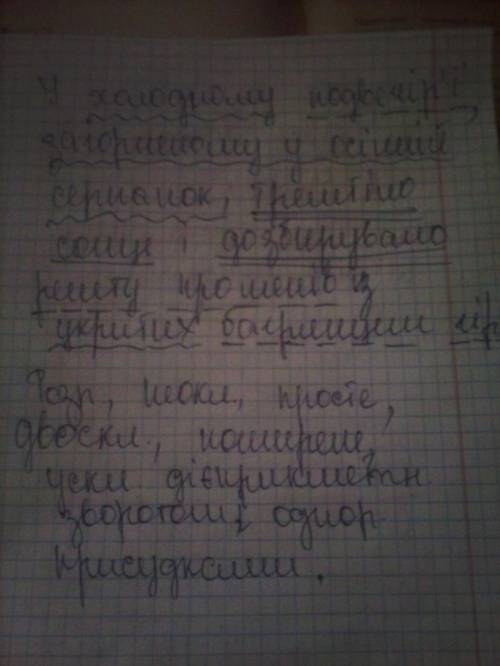 У холодному надвечір'ї,
загорненому у осінній
серпанок, тремтіло
сонце і дозбирувало
решту променів із
укритих багрянцем гір
Розп, неокл, просте,
двоскл., поширене,
ускл. дієприкметн
зворотом і однор
присудками.